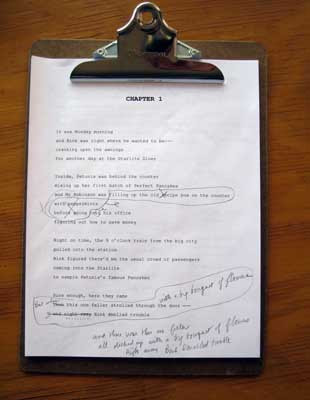 CHAPTER 1
It was Monday morning
and Rink was right where he wanted to be--
cranking open the awnings
for another day at the Starlite Diner
Inside, Petunia was behind the counter
mixing up her first batch of Perfect Pancakes
and Mr Robinson was filling up the old recipe box on the counter
with peppermints
before going into his office
figuring out how to save money
Right on time, the 9 o'clock train from the big city
pulled into the station
Rink figured there'd be the usual crowd of passengers
coming into the Starlite
to sample Petunia's famous Pancakes
Sure enough, here they came
with a big bouquet of flowers
But
Then this one feller strolled through the door
and right away Rink smelled trouble
and there was this one feller
all decked up with a big bouquet of flowers
right away Rink smelled trouble